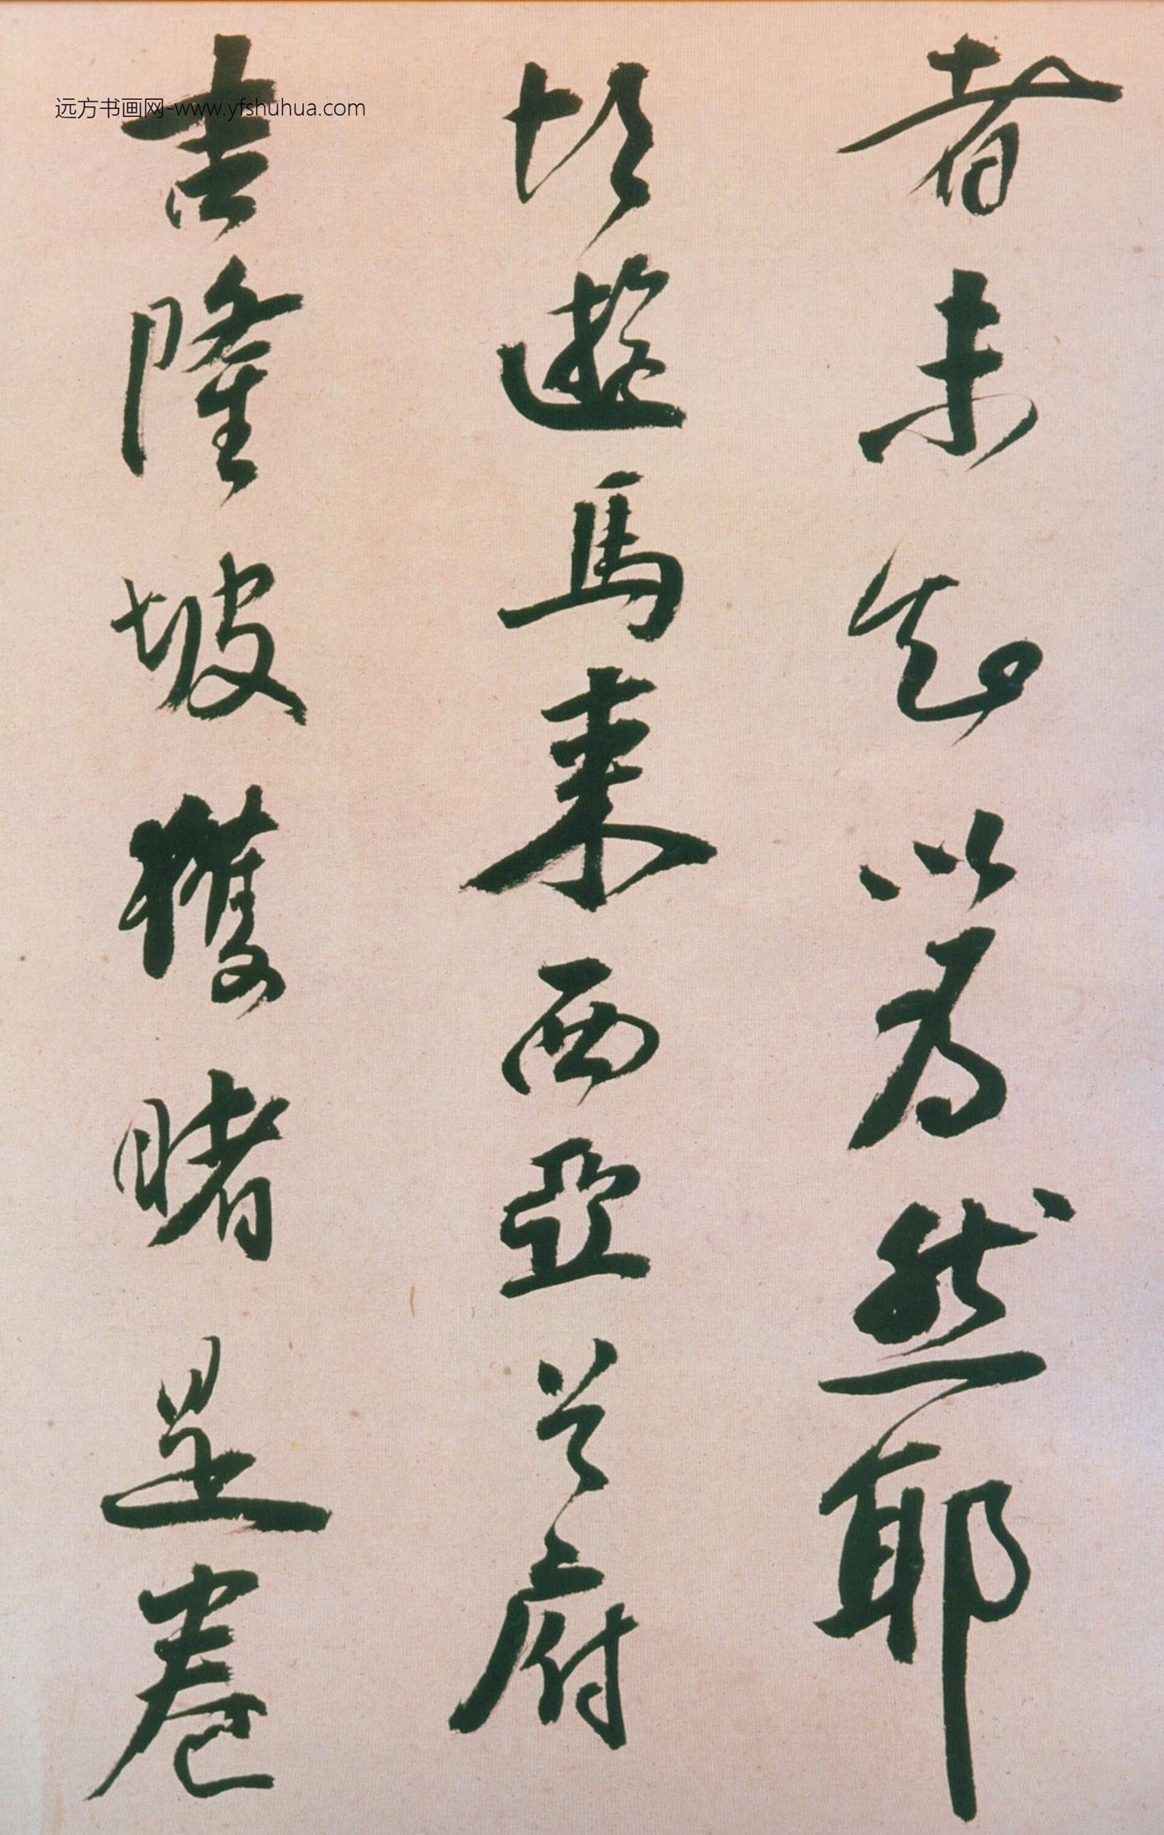 远方书画网-www.yfshuhua.com
者未知以為然耶
頃遊馬来西亞首府
吉隆坡獲睹是卷